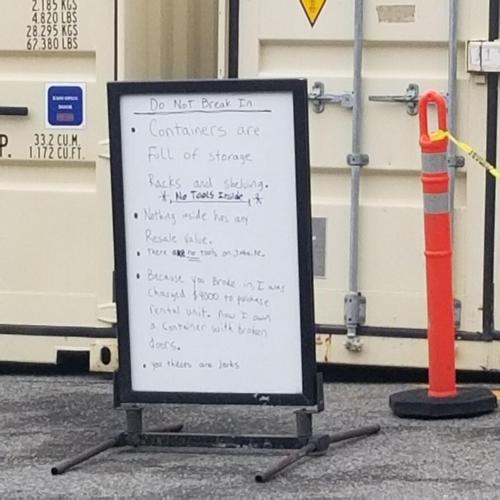 2.185 KGS
4.820 LBS
28.295 KGS
62.380 LBS
P. 33.2 CU.M.
1.172 CU.FT.
Do Not Break In
• Containers are
Full of storage
Racks and shelving.
* No Tools Inside *
• Nothing inside has any
Resale value.
• There are no tools on
• Because you Broke in I was
charged $4000 to purchase
rental unit. Now I own
a container with broken
doors.
• you theives are Jerks